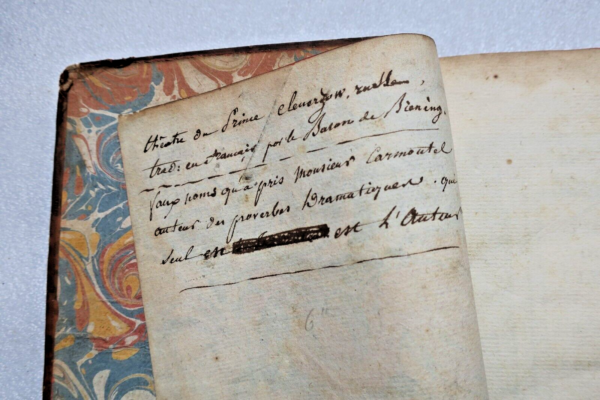 théatre du Prince Clenerzow, russe,
trad: en francais par le Baron de Blening.
faux noms qu'a pris Monsieur Carmontel
auteur des proverbes Dramatiques. qui
seul est est L'Auteur
6"